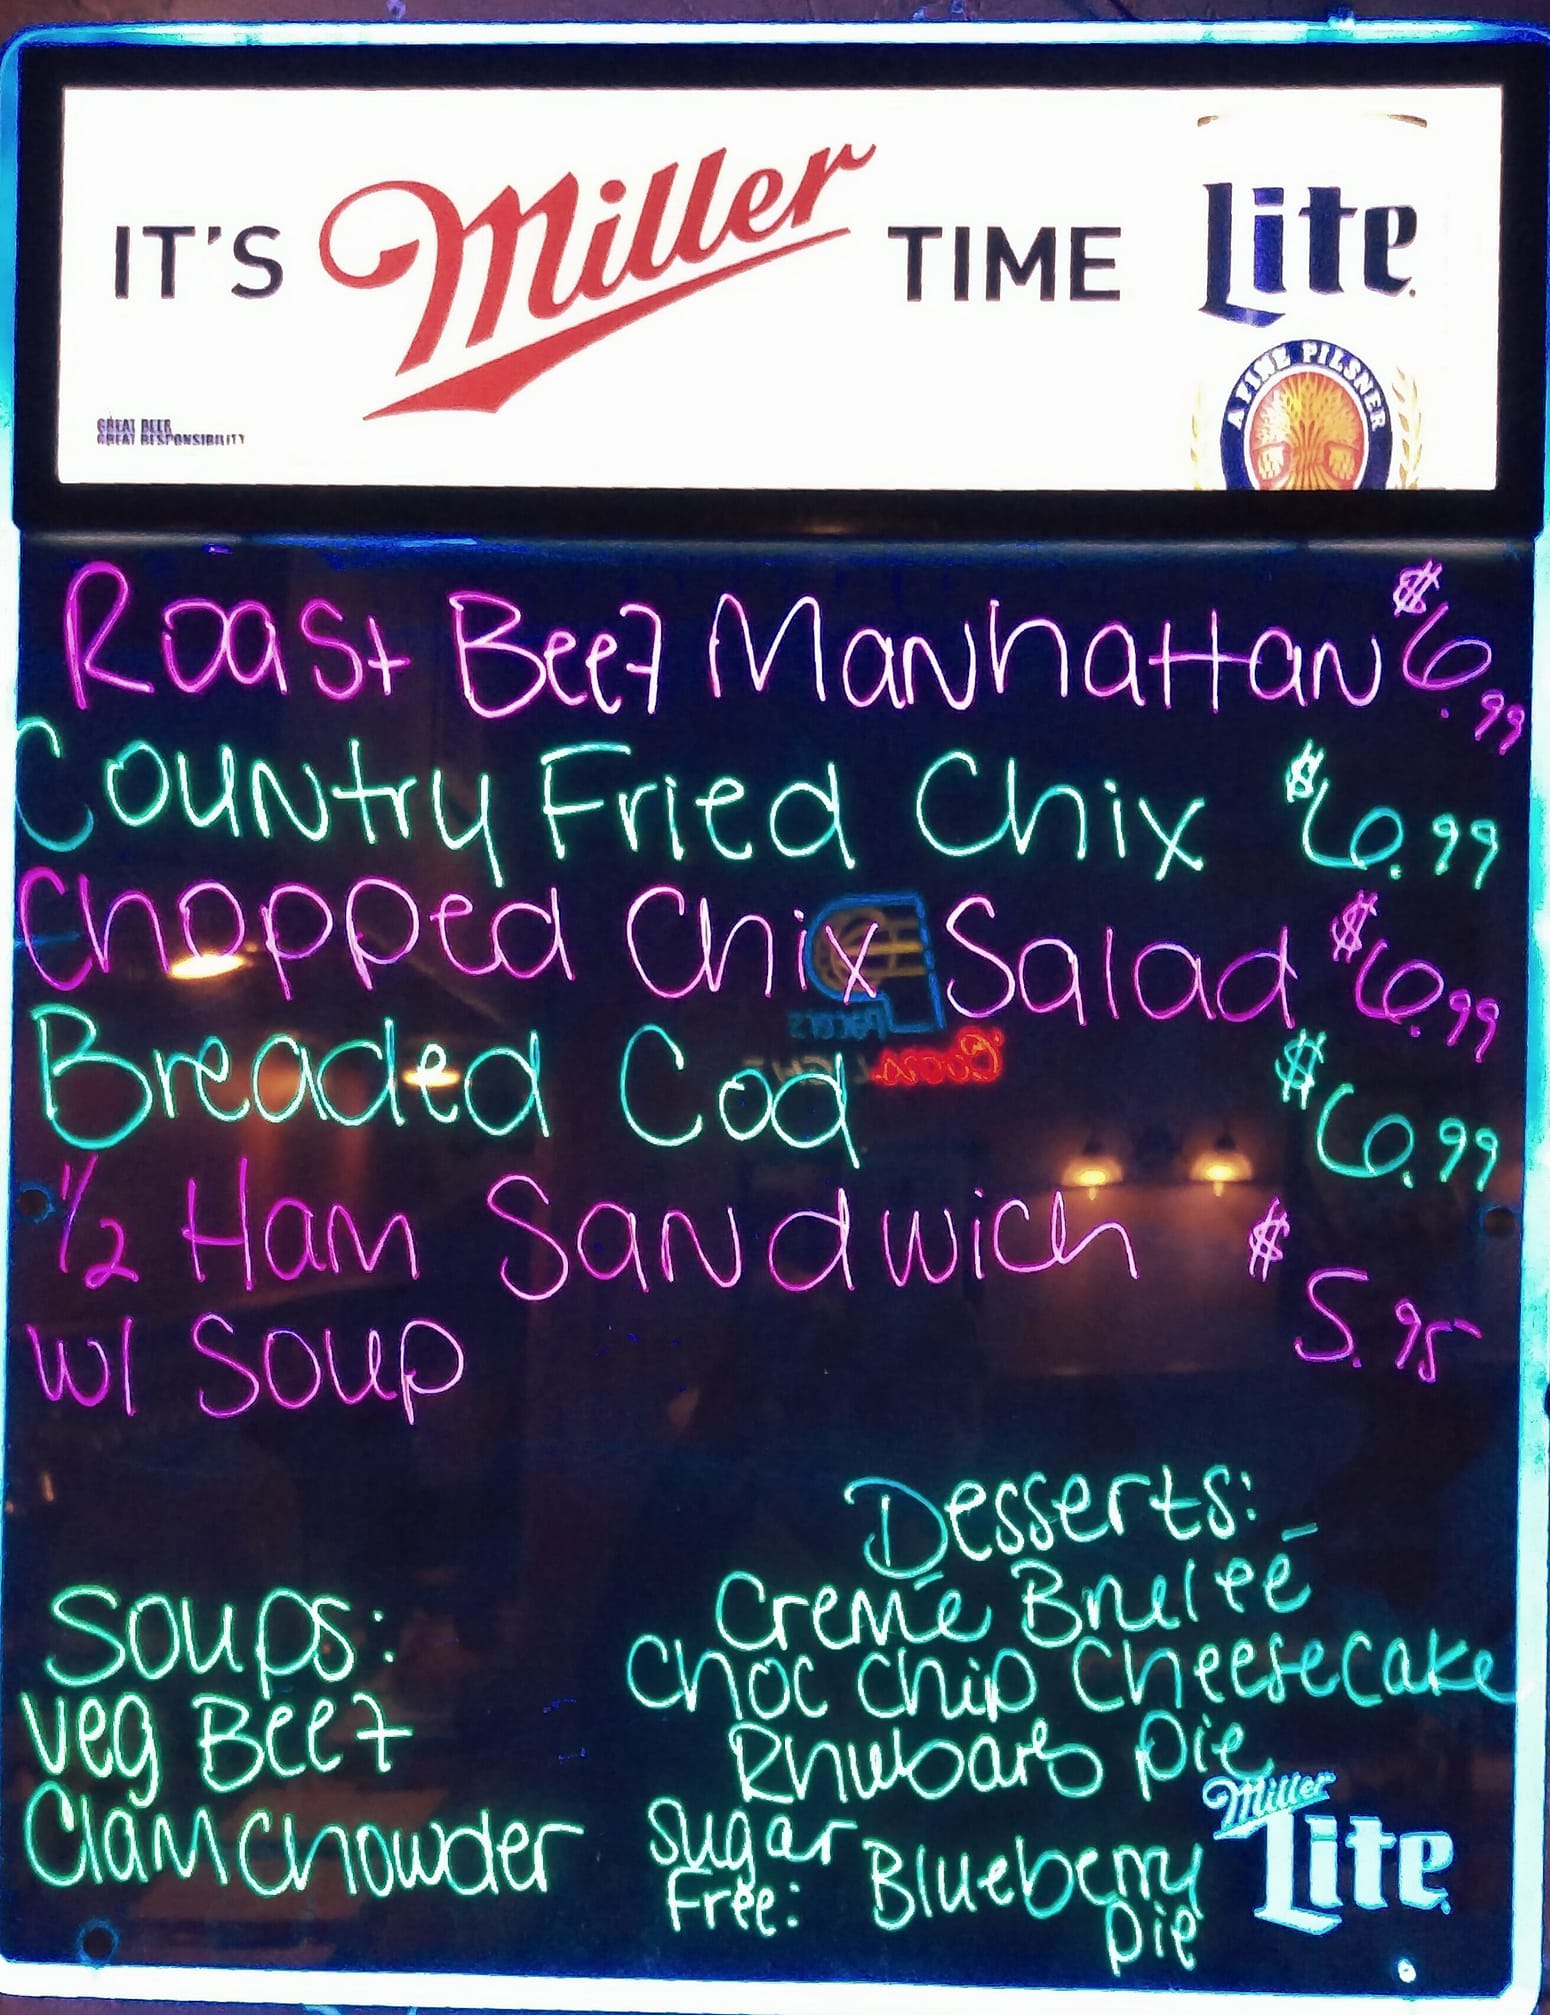 IT'S Miller TIME Lite
A FINE PILSNER
GREAT BEER
GREAT RESPONSIBILITY
Roast Beef Manhattan $6.99
Country Fried Chix $6.99
Chopped Chix Salad $6.99
Breaded Cod $6.99
1/2 Ham Sandwich $5.95
w/ Soup
Soups:
Veg Beef
Clam Chowder
Desserts:
Creme Brulee
Choc Chip Cheesecake
Rhubarb Pie
Sugar Free: Blueberry Pie
Miller Lite
Pacers